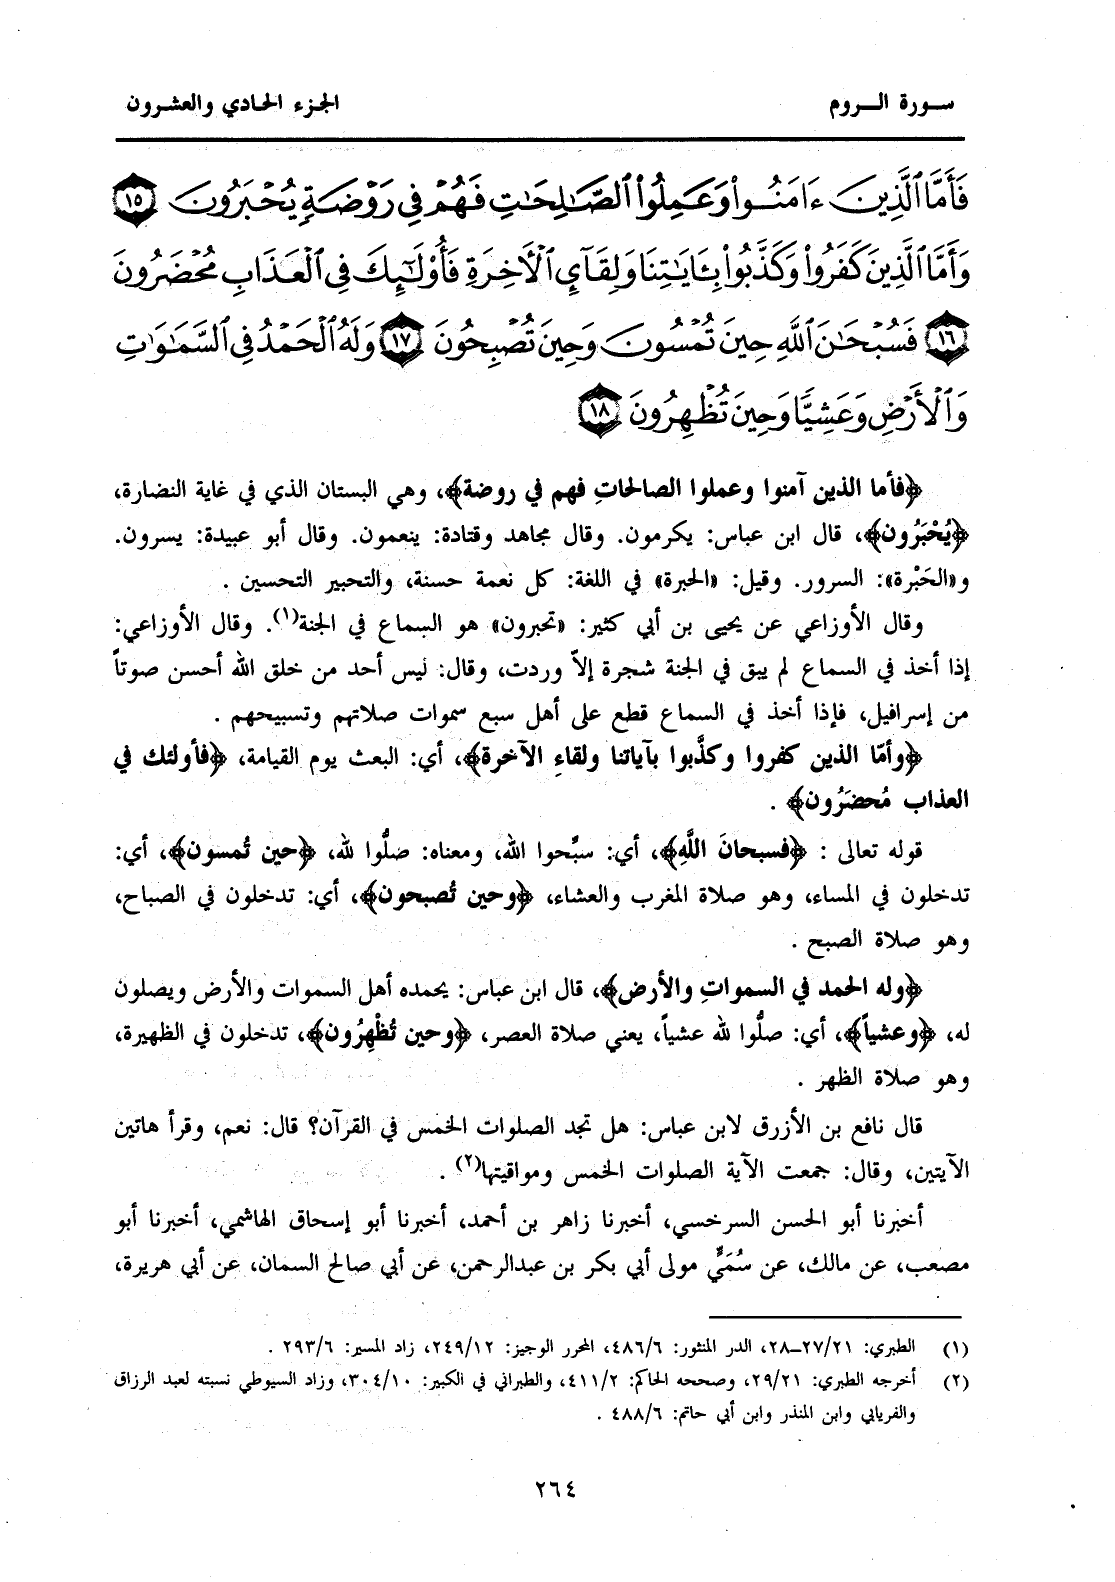 سورة الروم
الجزء الحادي والعشرون
فَأَمَّا ٱلَّذِينَ ءَامَنُوا۟ وَعَمِلُوا۟ ٱلصَّـٰلِحَـٰتِ فَهُمْ فِى رَوْضَةٍ يُحْبَرُونَ ١٥
وَأَمَّا ٱلَّذِينَ كَفَرُوا۟ وَكَذَّبُوا۟ بِـَٔايَـٰتِنَا وَلِقَآىِٕ ٱلْـَٔاخِرَةِ فَأُو۟لَـٰٓئِكَ فِى ٱلْعَذَابِ مُحْضَرُونَ
١٦ فَسُبْحَـٰنَ ٱللَّهِ حِينَ تُمْسُونَ وَحِينَ تُصْبِحُونَ ١٧ وَلَهُ ٱلْحَمْدُ فِى ٱلسَّمَـٰوَٰتِ
وَٱلْأَرْضِ وَعَشِيًّا وَحِينَ تُظْهِرُونَ ١٨
﴿فأما الذين آمنوا وعملوا الصالحاتِ فهم في روضة﴾، وهي البستان الذي في غاية النضارة،
﴿يُحْبَرُون﴾، قال ابن عباس: يكرمون. وقال مجاهد وقتادة: ينعمون. وقال أبو عبيدة: يسرون.
و«الحَبْرة»: السرور. وقيل: «الحبرة» في اللغة: كل نعمة حسنة، والتحبير التحسين .
وقال الأوزاعي عن يحيى بن أبي كثير: «تحبرون» هو السماع في الجنة(١). وقال الأوزاعي:
إذا أخذ في السماع لم يبق في الجنة شجرة إلاّ وردت، وقال: ليس أحد من خلق الله أحسن صوتاً
من إسرافيل، فإذا أخذ في السماع قطع على أهل سبع سموات صلاتهم وتسبيحهم .
﴿وأمّا الذين كفروا وكذَّبوا بآياتنا ولقاءِ الآخرة﴾، أي: البعث يوم القيامة، ﴿فأولئك في
العذاب مُحضَرُون﴾ .
قوله تعالى : ﴿فسبحانَ اللَّهِ﴾، أي: سبِّحوا الله، ومعناه: صلُّوا لله، ﴿حين تُمسون﴾، أي:
تدخلون في المساء، وهو صلاة المغرب والعشاء، ﴿وحين تُصبحون﴾، أي: تدخلون في الصباح،
وهو صلاة الصبح .
﴿وله الحمد في السمواتِ والأرض﴾، قال ابن عباس: يحمده أهل السموات والأرض ويصلون
له، ﴿وعشياً﴾، أي: صلُّوا لله عشياً، يعني صلاة العصر، ﴿وحين تُظْهِرُون﴾، تدخلون في الظهيرة،
وهو صلاة الظهر .
قال نافع بن الأزرق لابن عباس: هل تجد الصلوات الخمس في القرآن؟ قال: نعم، وقرأ هاتين
الآيتين، وقال: جمعت الآية الصلوات الخمس ومواقيتها(٢) .
أخبرنا أبو الحسن السرخسي، أخبرنا زاهر بن أحمد، أخبرنا أبو إسحاق الهاشمي، أخبرنا أبو
مصعب، عن مالك، عن سُمَيٍّ مولى أبي بكر بن عبدالرحمن، عن أبي صالح السمان، عن أبي هريرة،
(١) الطبري: ٢٧/٢١–٢٨، الدر المنثور: ٤٨٦/٦، المحرر الوجيز: ٢٤٩/١٢، زاد المسير: ٢٩٣/٦ .
(٢) أخرجه الطبري: ٢٩/٢١، وصححه الحاكم: ٤١١/٢، والطبراني في الكبير: ٣٠٤/١٠، وزاد السيوطي نسبته لعبد الرزاق
والفريابي وابن المنذر وابن أبي حاتم: ٤٨٨/٦ .
٢٦٤